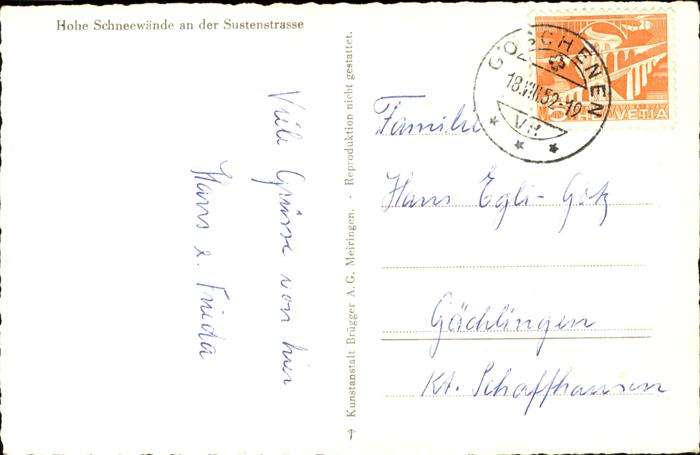 Hohe Schneewände an der Sustenstrasse
Viele Grüsse von hier
Hans & Frieda
Kunstanstalt Brügger A.G. Meiringen. - Reproduktion nicht gestattet.
GÖSCHENEN
18.VIII.52-19
HELVETIA
Familie
Hans Egli-Götz
Gächlingen
Kt. Schaffhausen